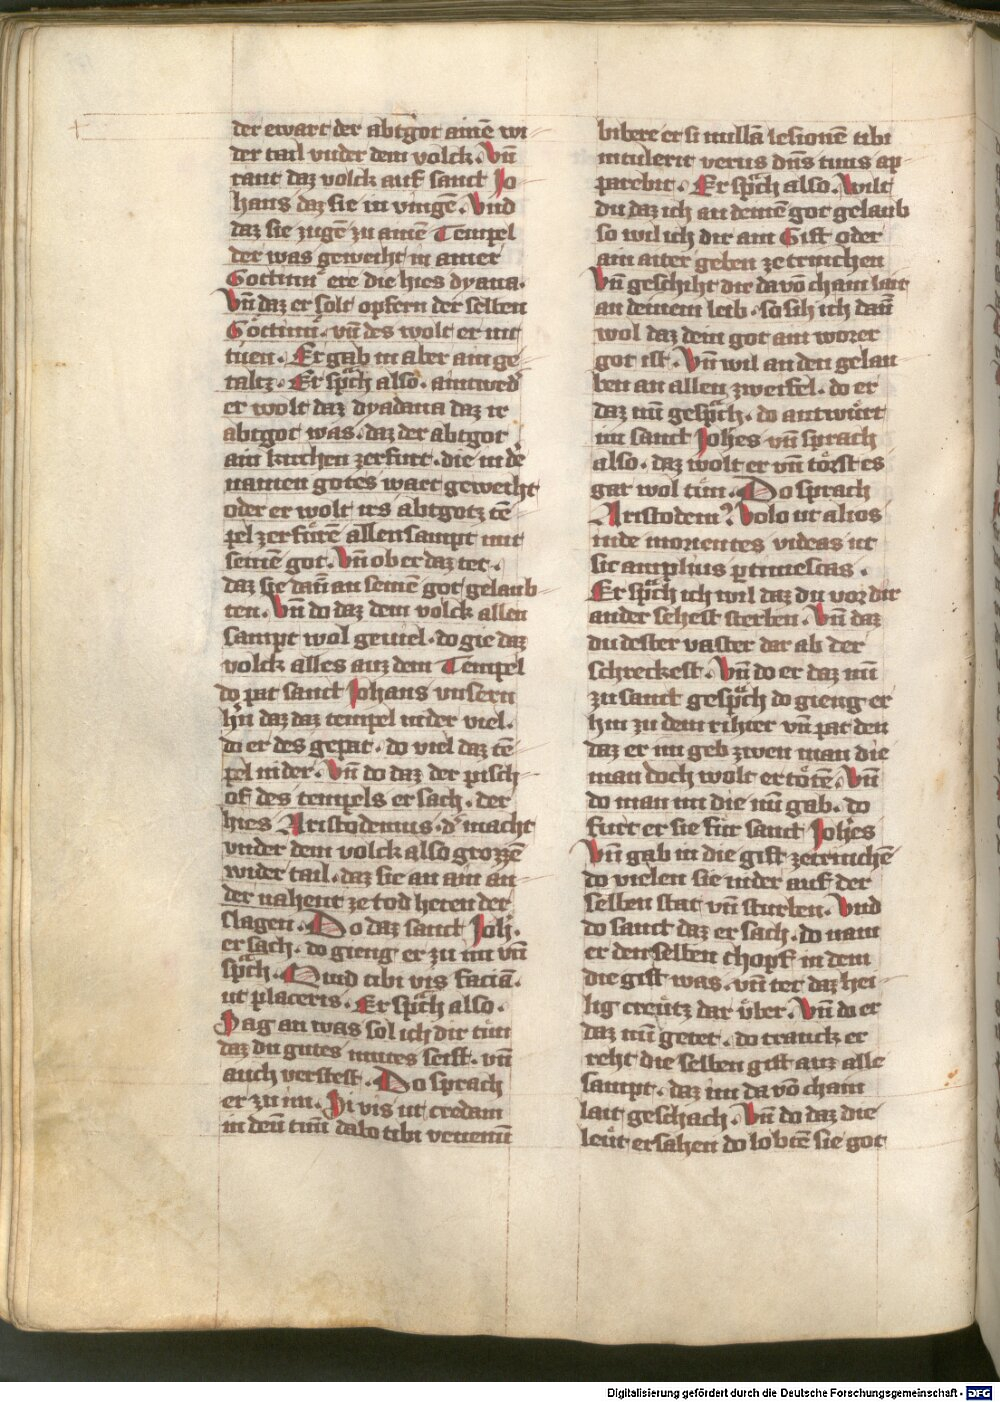 der ewart der abtgot ainē wi⸗
der tail vnder dem volck. Vn̄
rant daz volck auf sanct Jo
hans daz sie in vingē. Vnd
daz sie zugē zu ainē Tempel
der was geweiht in ainer
Gottinn ere die hies dyana.
Vn̄ daz er solt opfern der selben
Göttinn. vn̄ des wolt er nit
tuen. Er gab in aber ain ge
taltz. Er sprͣch also. aintwed̕
er wolt daz dyadana daz ir
abtgot was. daz der abtgot
ain kirchen zerfurt. die in dē
namen gotes wart geweiht
oder er wolt irs abtgotz tē
pel zerfürē allensampt mit
seinē got. Vn̄ ob er daz tet.
daz sie dan̄ an seinē got gelaub⸗
ten. Vn̄ do daz dem volck allen
sampt wol geuiel. do gie daz
volck alles auz dem Tempel
do pat sanct Johans vnsern
hr̄n daz daz tempel nider viel.
di er des gepat. do viel daz tē
pel nider. Vn̄ do daz der pisch⸗
of des tempels ersach. der
hies Aristodemus. d̕ macht
vnder dem volck also grozzē
wider tail. daz sie an ain an⸗
der nahent ze tod heten der
slagen. Do daz sanct Joh̄.
er sach. do gieng er zu im vn̄
sprͣch. Quid tibi vis faciā.
ut placeris. Er sprͣch also.
Sag an was sol ich dir tün
daz du gutes mutes seist. vn̄
auch verstest. Do sprach
er zu im. Si vis ut credam
in deū tuū dabo tibi venenū
bibere et si nullā lesionē tibi
intulerit verus dn̄s tuus ap⸗
parebit. Er sprͣch also. Wilt
du daz ich an deinē got gelaub
so wil ich dir ain Gift oder
ain aiter geben ze trinchen
Vn̄ geschiht dir da vō chain lait
an deinem leib. so sih ich dan̄
wol daz dein got ain worer
got ist. Vn̄ wil an den gelau
ben an allen zweifel. do er
daz nū gesprͣch. do antwürt
im sanct Joh̄es vn̄ sprach
also. daz wolt er vn̄ törst es
gar wol tün. Do sprach
Aristodem᷒ Volo ut alios
inde morientes videas ut
sic amplius ꝑtimescas.
Er sprͣch ich wil daz du vor dir
ander sehest sterben. Vn̄ daz
du dester vaster dar ab der
schreckest. Vn̄ do er daz nū
zu sanct gesprͣch do gieng er
hin zu dem rihter vn̄ pat den
daz er im geb zwen man die
man doch wolt ertötē. Vn̄
do man im die nū gab. do
furt er sie für sanct Joh̄es
Vn̄ gab in die gift ze trinchē
do vielen sie nider auf der
selben stat vn̄ sturben. Vnd
do sanct daz er sach. do nam
er den selben chopf in dem
die gift was. vn̄ tet daz hei⸗
lig creütz dar über. Vn̄ do er
daz nū getet. do tranck er
reht die selben gift auz alle
sampt. daz im da vō chain
lait geschach. Vn̄ do daz die
leüt ersahen do lobtē sie got
Digitalisierung gefördert durch die Deutsche Forschungsgemeinschaft - DFG